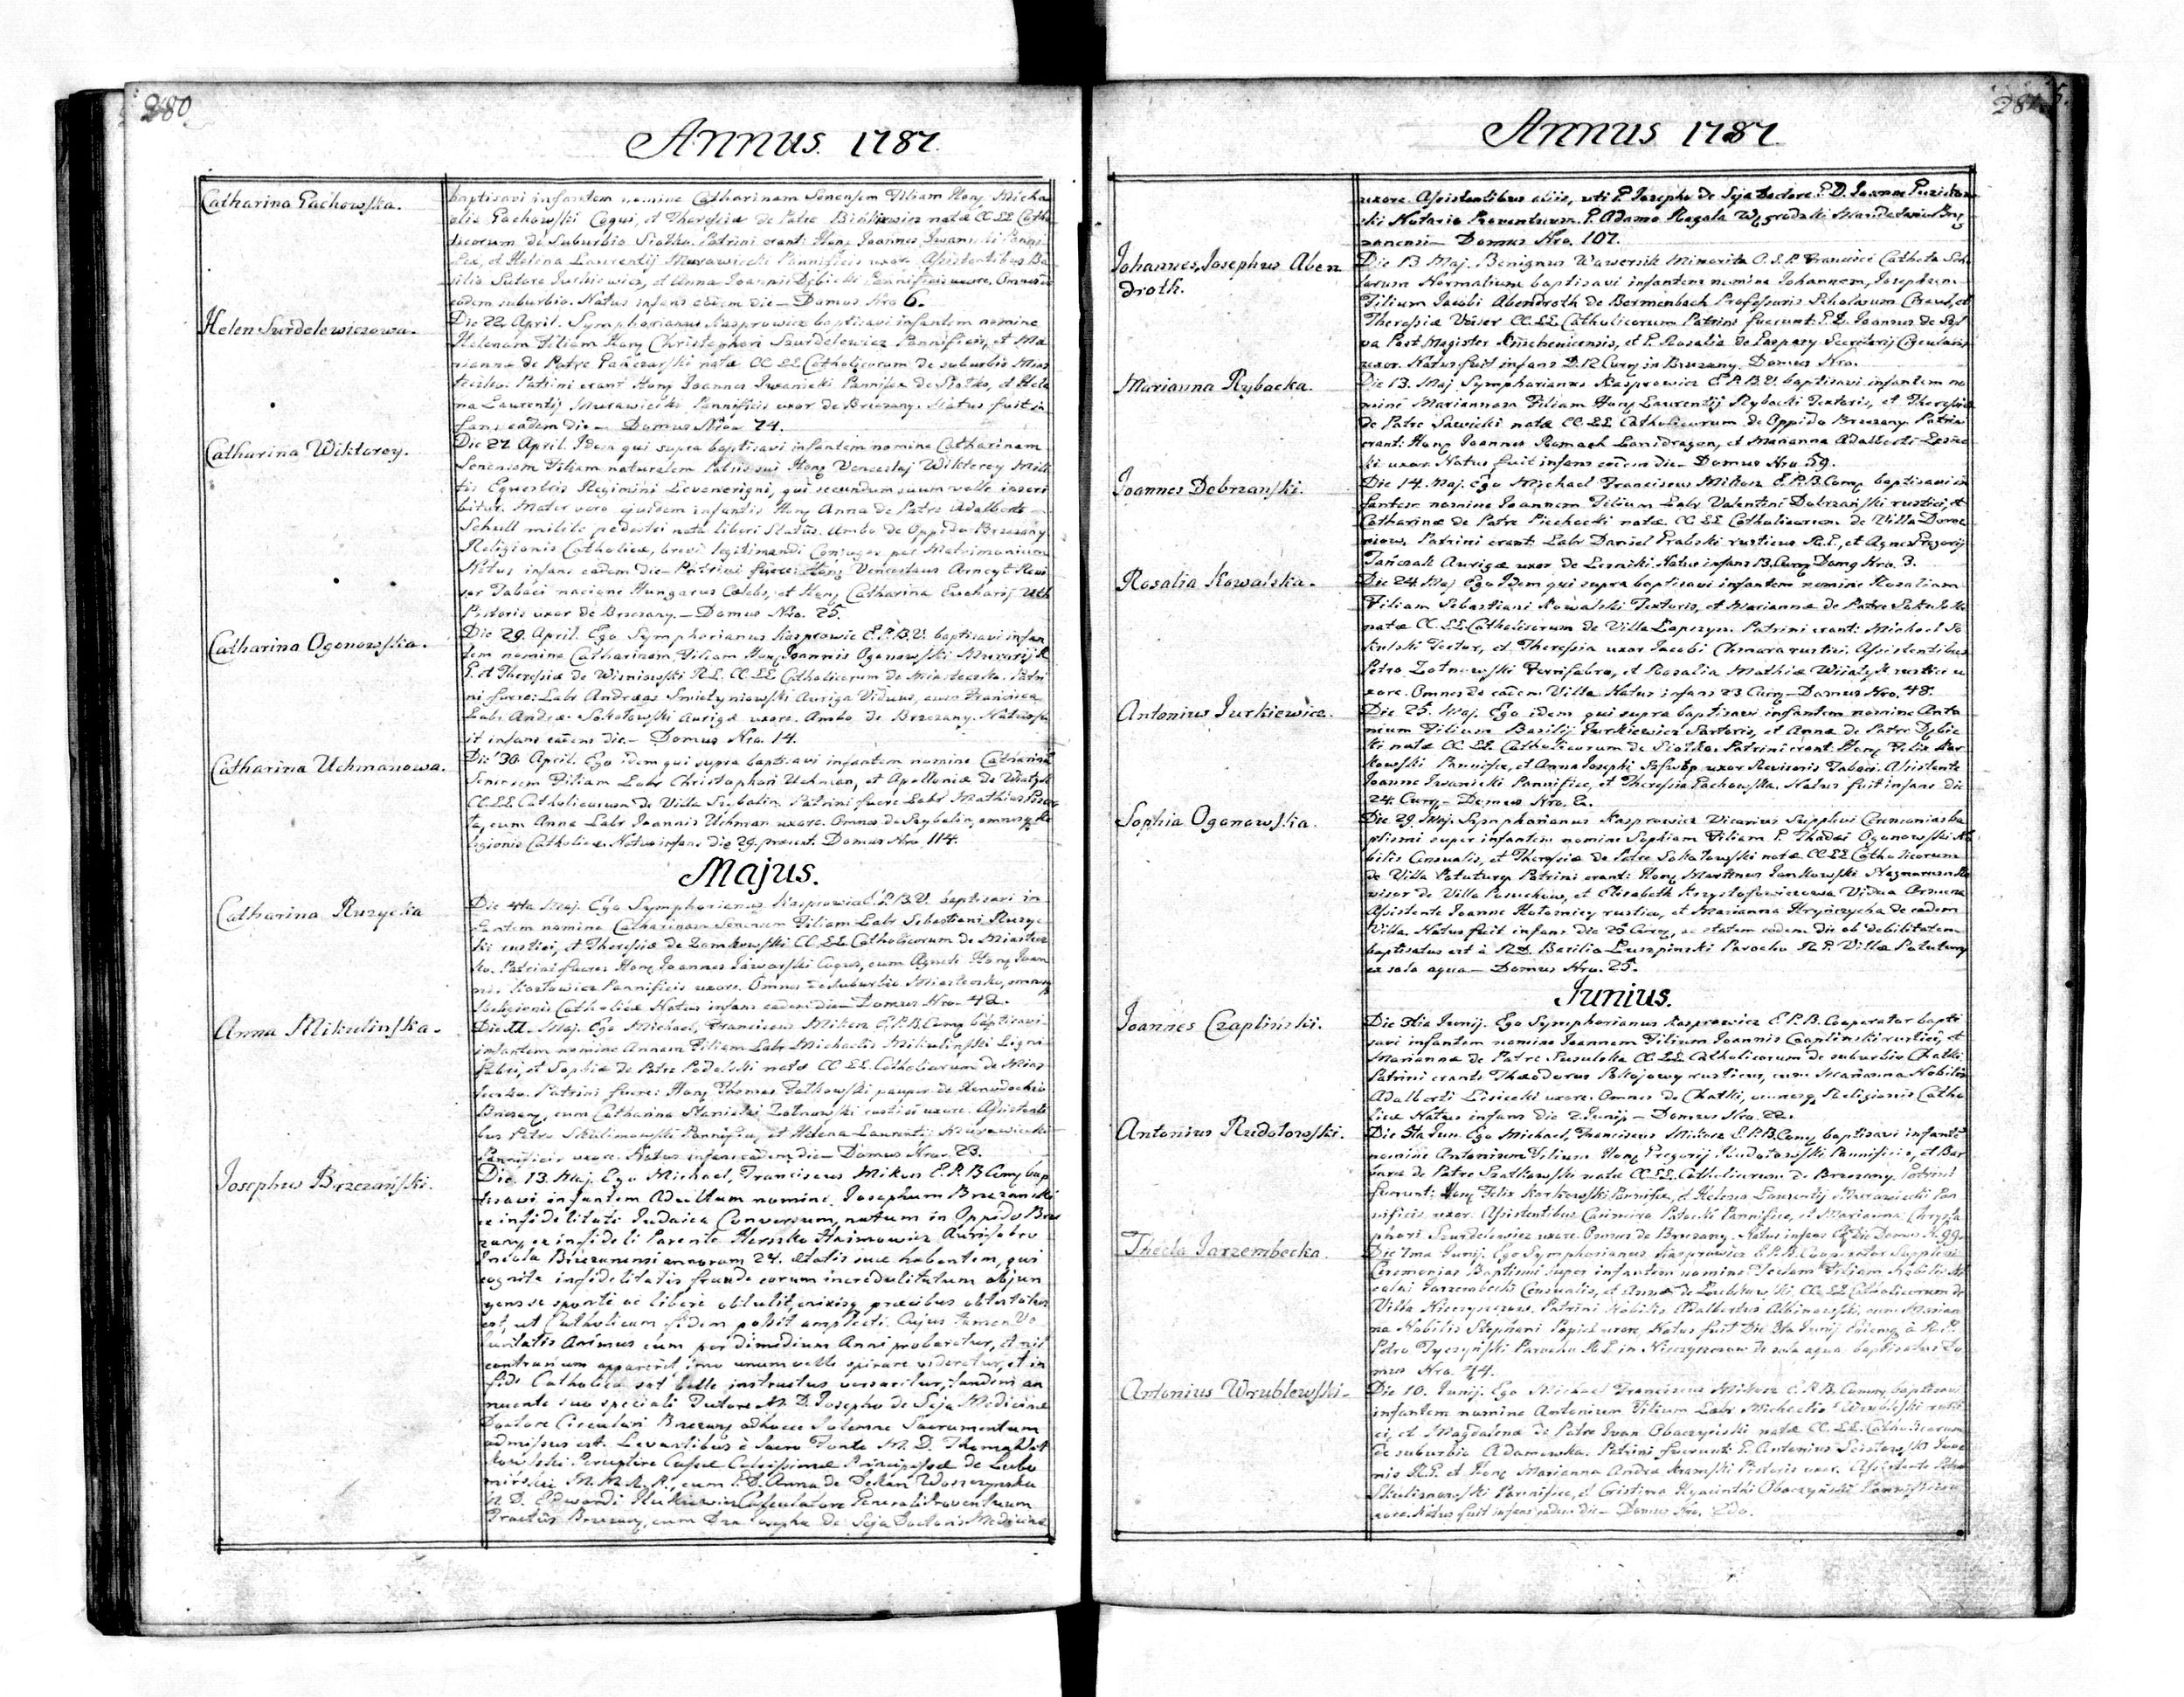 280
Annus. 1787.
Catharina Pachowska.
baptisavi infantem nomine Catharinam Senensem Filiam Hon. Micha
elis Pachowski Coqui, et Theresiæ de Patre natæ CC. LL. Catho
licorum de Suburbio Siołko. Patrini erant: Hon. Joannes Iwanicki Panni
fex, et Helena Laurentij Murawiecki Pannificis uxor. Assistentibus Ba
silio Sutore Jurkiewicz, et Anna Joannis Dębicki Pannificis uxore. Omnes ex
eodem suburbio. Natus infans eâdem die — Domus Nro 6.
Helen Surdelewiczowa.
Die 22. April. Symphorianus Kasprowicz baptisavi infantem nomine
Helenam Filiam Hon. Christophori Szurdelewicz Pannificis, et Ma
rianna de Patre natæ CC LL Catholicorum de suburbio Mias
teczko. Patrini erant Hon. Joannes Iwanicki Pannifex de Siołko, et Hele
na Laurentij Murawiecki Pannificis uxor de Brzezany. Natus fuit in
fans eadem die — Domus Nro 74.
Catharina Wiktorey.
Die 27 April. Idem qui supra baptisavi infantem nomine Catharinam
Senensem Filiam naturalem Patris sui Hon. Venceslaj Wiktorey Mili
tis Equestris Regimini qui secundum suum velle inscri
bitur. Mater vero ejusdem infantis Hon. Anna de Patre Adalberto
Schull milite pedestri nata liberi Status. Ambo de Oppido Brzezany
Religionis Catholicæ, brevi legitimandi Conjuges per Matrimonium
Natus infans eadem die — Patrini fuere: Hon. Venceslaus Revi
sor Tabaci nacione Hungarus Cælebs, et Hon. Catharina Eucharij
Pistoris uxor de Brzezany. — Domus Nro. 25.
Catharina Ogonowska.
Die 29. April. Ego Symphorianus Kasprowic E.P.B.V. baptisavi infan
tem nomine Catharinam, Filiam Hon. Joannis Ogonowski Murarij R.
G. et Theresiæ de Wisniowski R.L. CC. LL. Catholicorum de Miasteczko. Patri
ni fuere: Labr Andreas Auriga Viduus, cum Francisca
Labr. Andreæ Sokołowski Aurigæ uxore. Ambo de Brzezany. Natus fu
it infans eâdem die. — Domus Nro. 14.
Catharina Uchmanowa.
Die 30. April. Ego idem qui supra baptisavi infantem nomine Catharinam
Senensem Filiam Labr Christophori Uchman, et Apolloniæ de
CC. LL. Catholicorum de Villa Szybalin. Patrini fuere Labr Mathias
cum Anna Labr Joannis Uchman uxore. Omnes de Szybalin, omnesq. Re
ligionis Catholicæ. Natus infans die 29. præsent. Domus Nro. 114.
Majus.
Catharina Ruzycka
Die 4ta Maj. Ego Symphorianus Kasprowicz E.P.B.V. baptisavi in
fantem nomine Catharinam Senensem Filiam Labr Sebastiani Ruzyc
ki rustici, et Theresiæ de Zamkowski CC. LL. Catholicorum de Miastecz
ko. Patrini fuere: Hon. Joannes Jaworski Coquus, cum Agneti Hon. Joan
nis Kozłowicz Pannificis uxore. Omnes de suburbio Miasteczko, omnesq
Religionis Catholicæ Natus infans eadem die — Domus Nro. 42.
Anna Mikulinska.
Die 11. Maj. Ego Michael, Franciscus Mikosz E.P.B. Comp baptisavi
infantem nomine Annam Filiam Labr Michaelis Mikulinski Ligni
fabri, et Sophiæ de Patre Podolski natæ CC. LL. Catholicorum de Mias
teczko. Patrini fuere: Hon. Thomas Falkowski pauper de Xenodochio
Brzezany, cum Catharina Stanislai Zotnowski rustici uxore. Assistenti
bus Petro Skulimowski Pannifice, et Helena Laurentij Murawiecki
Pannificis uxore. Natus infans eadem die — Domus Nro. 23.
Josephus Brzezański.
Die 13. Maj. Ego Michael, Franciscus Mikosz E.P.B. Comp bap
tisavi infantem Adultum nomine Josephum Brzezanski
ex infidelitate Judaica Conversum, natum in Oppido Brze
zany, ex infideli Parente Herszko Haimowicz Aurifabro
Incola Brzezanensi annorum 24. ætatis suæ habentem, qui
cognita infidelitatis fraude eorum incredulitatum abjun
gens se sponte ac libere obtulit, enixisq. præcibus obtestatus
est, ut Catholicam fidem possit amplecti. Cujus tamen Vo
luntatis Animus cum per dimidium Anni probaretur, et nil
contrarium appareret imo unum velle spirare videretur, et in
fide Catholica sat belle instructus versaretur, tandem an
nuente suo speciali Tutore M. D. Josepho de Seja Medicinæ
Doctore Circulari Brzezany adhocce Solemne Sacramentum
admissus est. Levantibus è Sacro Fonte M. D. Thoma
kowski Perceptore Cassæ Celsissimæ Principissæ de Lubo
mirskie M. M. R. P., cum P. D. Anna de Dekan Woszczynska
M. D. Edwardi Calculatore Generali Proventuum
Tractûs Brzezany, cum Dna Josepha de Seja Doctoris Medicinæ
281
Annus 1787.
uxore. Assistentibus aliis, uti P. Josepho de Seja Doctore. P. D. Joanne
ski Notario Proventuum. P. Adamo Rogala Węgrodzki Mandatario Brze
zanensi — Domus Nro. 107.
Johannes, Josephus Aben
droth.
Die 13 Maj. Benignus Wawersik Minorita O.S.P. Francisci Catheta Scho
larum Normalium baptisavi infantem nomine Johannem, Josephum
Filium Jacobi Abendroth de Bermenbach Professoris Scholarum et
Theresiæ CC. LL. Catholicorum Patrini fuerunt: P. D. Joannes de Syl
va Post Magister et P. Rosalia de Secretarij Circularis
uxor. Natus fuit infans D. 12 Curr. in Brzezany. Domus Nro.
Marianna Rybacka.
Die 13. Maj Symphorianus Kasprowicz E.P.B.V. baptisavi infantem no
mine Mariannam Filiam Hon. Laurentij Rybacki Textoris, et Theresiæ
de Patre Sawicki natæ CC. LL Catholicorum de Oppido Brzezany. Patrini
erant: Hon. Joannes Romach et Marianna Adalberti
ki uxor. Natus fuit infans eâdem die — Domus Nro. 59.
Joannes Dobrzanski.
Die 14. Maj. Ego Michael Franciscus Mikosz E.P.B. Comp baptisavi in
fantem nomine Joannem Filium Labr Valentini Dobrzański rustici, et
Catharinæ de Patre Piechocki natæ. CC LL Catholicorum de Villa
Patrini erant Labr Daniel Grabski rusticus R.G., et Agnes Gregorij
Tańczak Aurigæ uxor de Lesniki. Natus infans 13. Curr. Domus Nro. 3.
Rosalia Kowalska.
Die 24 Maj Ego Idem qui supra baptisavi infantem nomine Rosaliam
Filiam Sebastiani Kowalski Textoris, et Marianna de Patre
natæ CC. LL Catholicorum de Villa Łapszyn. Patrini erant: Michael So
kulski Textor, et Theresia uxor Jacobi Chmara rustici. Assistentibus
Petro Zotnowski Ferrifabro, et Rosalia Mathiæ rustici u
xore. Omnes de eadem Villa. Natus infans 23 Curr. — Domus Nro. 48.
Antonius Jurkiewicz.
Die 25. Maj. Ego idem qui supra baptisavi infantem nomine Anto
nium Filium Basilij Jurkiewicz Sartoris, et Anna de Patre Dębic
ki natæ CC. LL. Catholicorum de Siołko. Patrini erant: Hon. Felix Kar
kowski Pannifex, et Anna Josephi uxor Revisoris Tabaci. Assistente
Joanne Iwanicki Pannifice, et Theresia Pachowska. Natus fuit infans die
24. Curr. — Domus Nro. 2.
Sophia Ogonowska.
Die 29. Maj. Symphorianus Kasprowicz Vicarius Supplevi Ceremonias ba
ptismi super infantem nomine Sophiam Filiam P. Thadæi Ogonowski No
bilis Censualis, et Theresiæ de Patre Sokołowski natæ CC LL Catholicorum
de Villa Potutury. Patrini erant: Hon. Martinus Jankowski Re
visor de Villa Posuchow, et Elisabeth Krzysztofowiczowa Vidua Armena
Assistente Joanne Kołomiey rustico, et Marianna Hryńczycha de eadem
Villa. Natus fuit infans die 25 Curr. ac statem eadem die ob debilitatem
baptisatus est à R.D. Basilio Łuszpinski Parocho R.G. Villæ Potutury
ex sola aqua — Domus Nro. 25.
Junius.
Joannes Czapliński.
Die 3tia Junij. Ego Symphorianus Kasprowicz E.P.B. Cooperator bapti
savi infantem nomine Joannem Filium Joannis Czaplinski rustici, et
Marianna de Patre CC. LL Catholicorum de suburbio Chatki
Patrini erant: Theodorus Pokojowy rusticus, cum Marianna Nobilis
Adalberti Lisiecki uxore. Omnes de Chatki, omnesq. Religionis Catho
licæ Natus infans die 2 Junij — Domus Nro. 22.
Antonius Rudolowski.
Die 5ta Jun. Ego Michael, Franciscus Mikosz E.P.B. Comp baptisavi infantē
nomine Antonium Filium Hon. Gregorij Rudolowski Pannificis, et Bar
bara de Patre natæ CC. LL. Catholicorum de Brzezany. Patrini
fuerunt: Hon. Felix Karkowski Pannifex, et Helena Laurentij Murawiecki Pan
nificis uxor. Assistentibus Casimiro Patocki Pannifice, et Marianna Chrysto
phori Szurdelewicz uxore. Omnes de Brzezany. Natus infans Die Domus N. 99.
Thecla Jarzembecka.
Die 7ma Junij. Ego Symphorianus Kasprowicz E.P.B. Cooperator Supplevi
Ceremonias Baptismi super infantem nomine Teclam Filiam Nobilis Ni
colai Jarzembecki Censualis, et Anna de CC. LL Catholicorum de
Villa Patrini Nobilis Adalbertus Albinowski, cum Marian
na Nobilis Stephani Popiel uxore. Natus fuit Die 3tia Junij à R.P.
Petro Parocho R.G. in de sola aqua baptisatus Do
mus Nro. 44.
Antonius Wrublewski.
Die 10. Junij. Ego Michael Franciscus Mikosz E.P.B. Comp baptisavi
infantem nomine Antonium Filium Labr Michaelis Wrubleski rusti
ci, et Magdalena de Patre Ivan Obaczyński natæ CC. LL. Catholicorum
de suburbio Adamowka. Patrini fuerunt: P. Antonius Juve
nis R.G. et Hon. Marianna Andreæ Pistoris uxor. Assistente Petro
Skulimowski Pannifice, et Cristina Hyacinthi Obaczyński Pannificis u
xore. Natus fuit infans eadem die — Domus Nro.